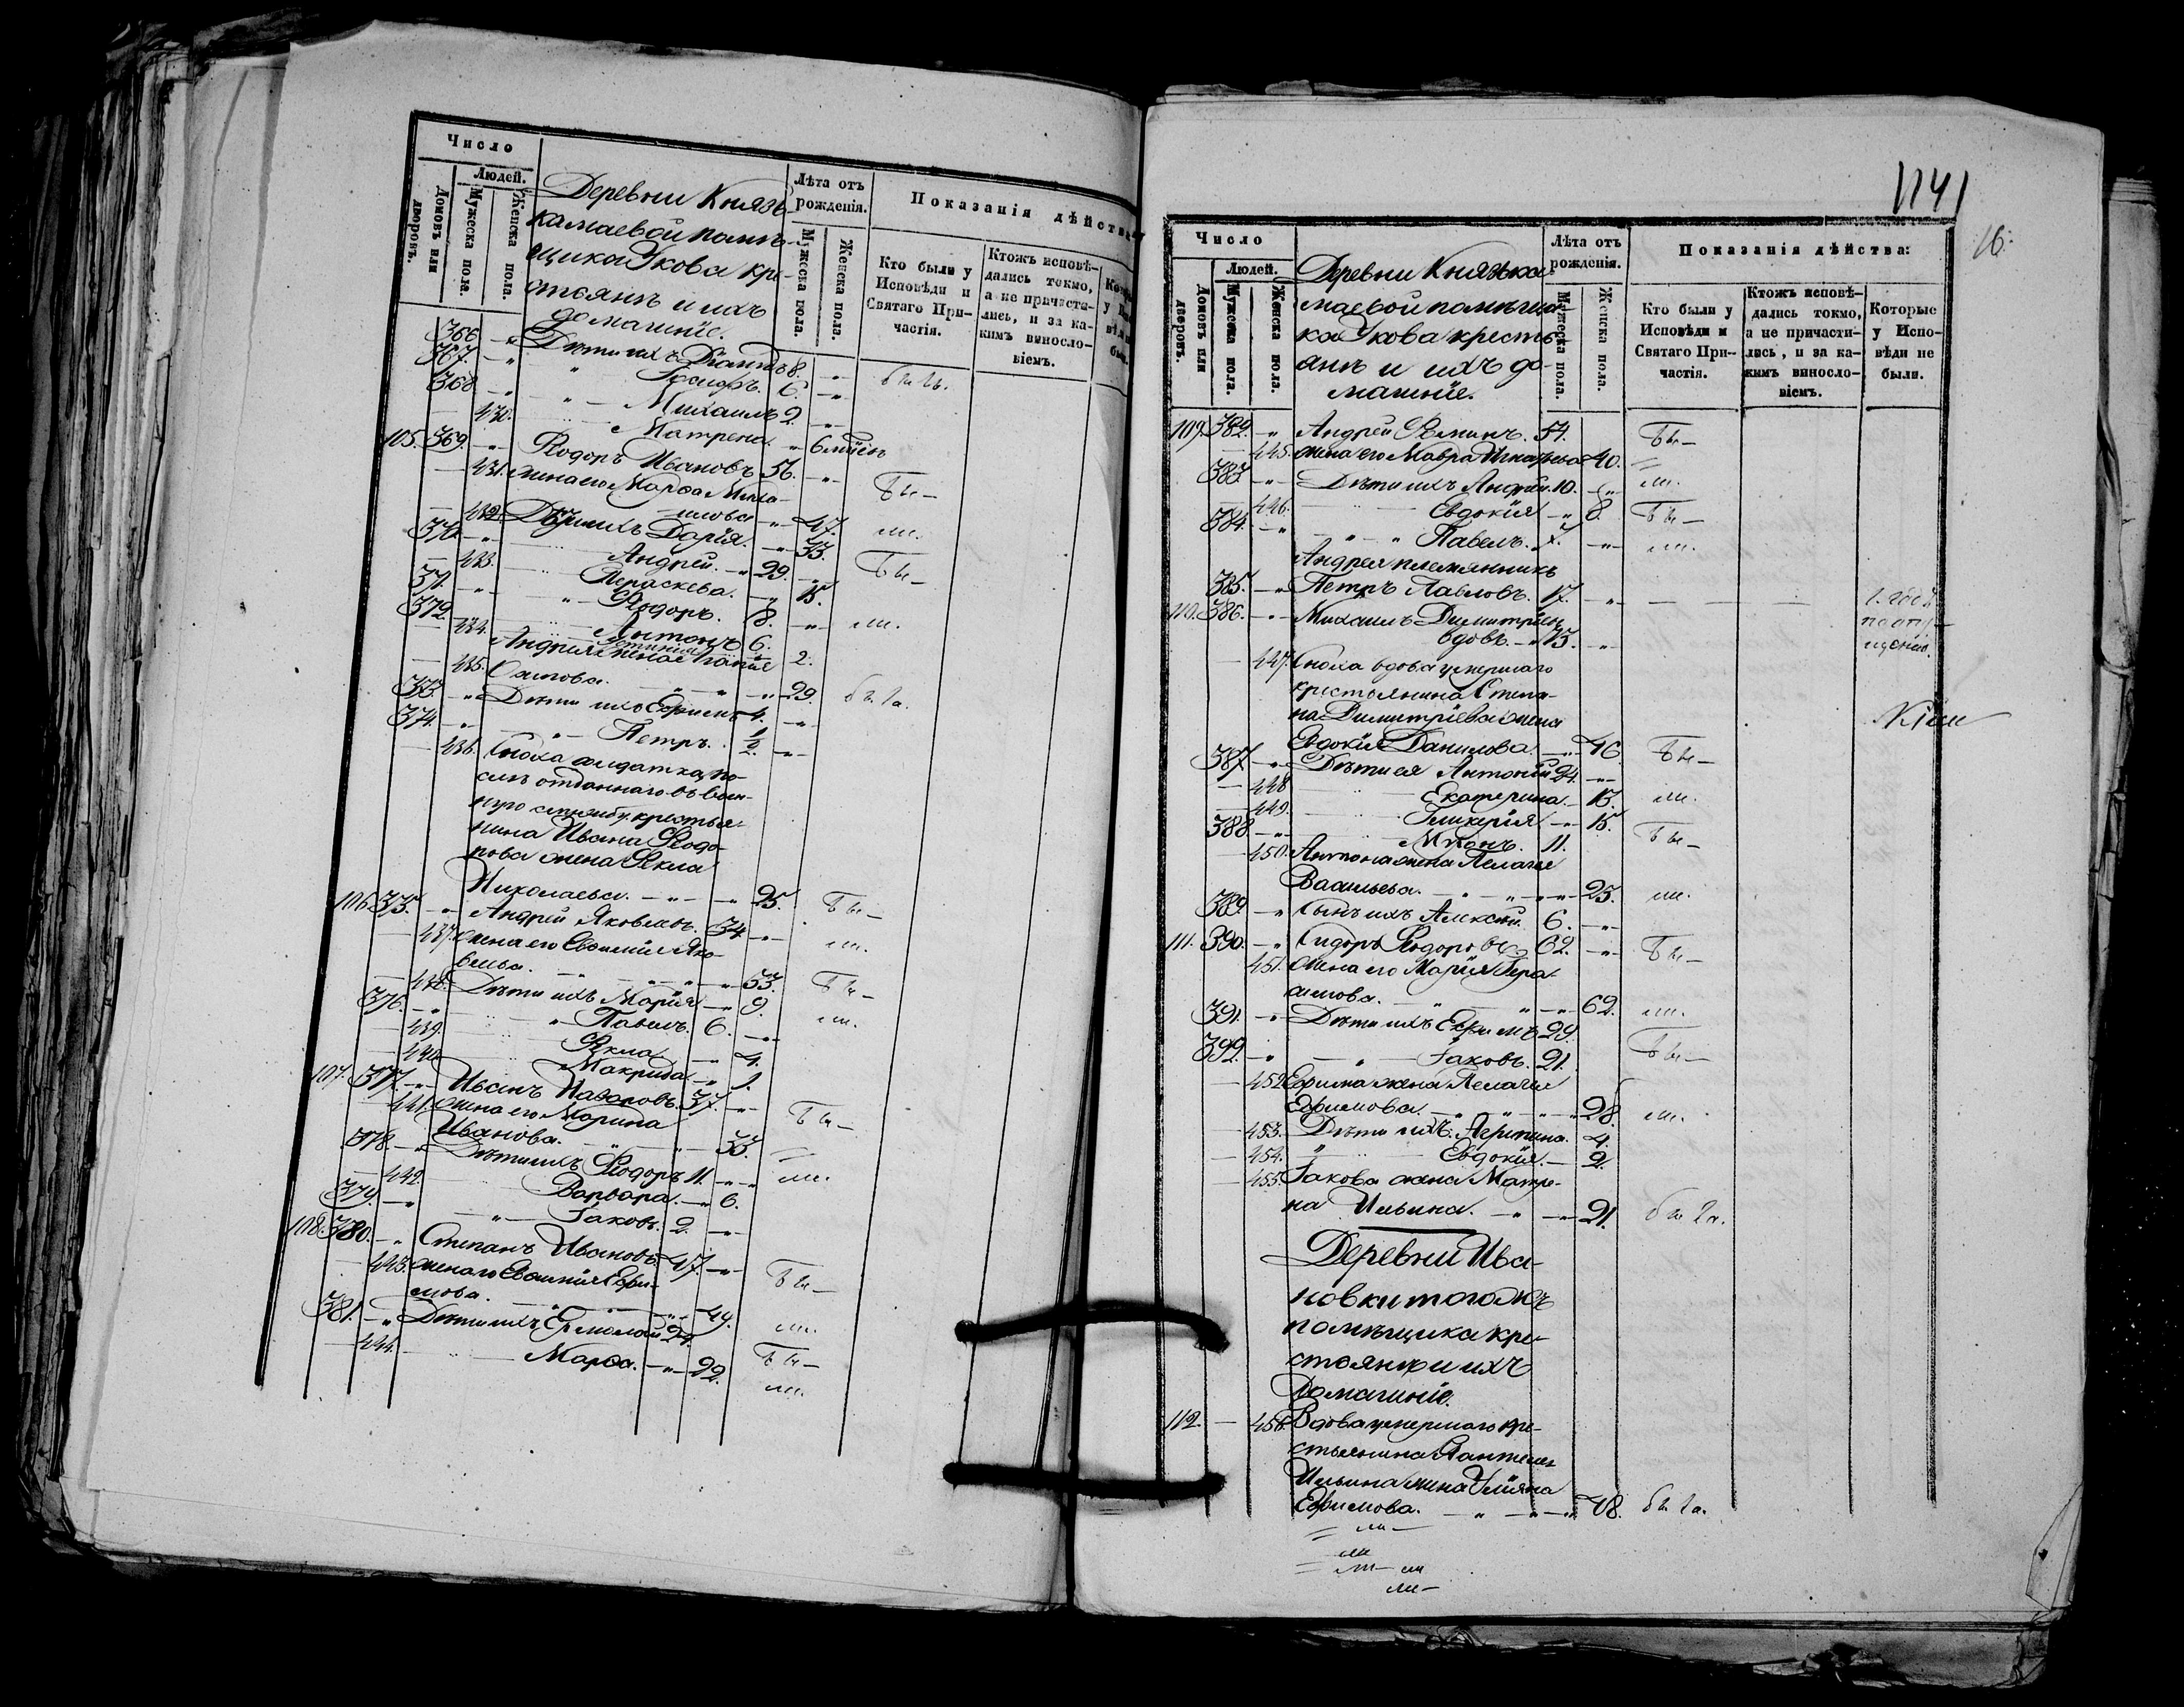 Число
Людей.
Домовъ или дворовъ.
Мужеска пола.
Женска пола.
Деревни Князь-
камаевой помѣ-
щика Укова кре-
стьянъ и ихъ
домашніе.
Лѣта отъ рожденія.
Мужеска пола.
Женска пола.
Показанія дѣйства
Кто были у Исповѣди и Святаго При-частія.
Ктожъ исповѣ-дались токмо, а не причасти-лись, и за ка-кимъ винословіемъ.
366 - " Дѣти ихъ 8. - "
367. - " 6. - "
368 - " Михаилъ 2. - "
430. Матрена. "
105. 369. - " Ѳедоръ Ивановъ 56. - "
431. жена его Марѳа
" 47.
432. Дѣти ихъ Дарія. - " 33.
370. - " Андрей. - " 29.
433. Параскева. - " 15.
371. - " Ѳедоръ. 8. - "
372. Антонъ 6.
434. 2.
435. Андрея жена
" 29.
373. - " Дѣти ихъ Ефимъ 4. - "
374. - " Петръ. 1/2. - "
436. Сноха солдатка, по-
слѣ отданнаго въ воен-
ную службу крестья-
нина Ивана Ѳедо-
рова жена Ѳекла
Николаева. - " - " 25.
106. 375. - " Андрей Яковлевъ. 34 - "
437. жена его Евфимія Яко-
влева. - " 33.
438. Дѣти ихъ Марія - " 9.
376. - " Павелъ. 6. - "
439. Ѳекла - " 4.
440. Макрида - " 1.
107. 377. - " Иванъ Назаровъ. 37. - "
441. жена его Марина
Иванова. - " 33.
378. - " Дѣти ихъ Ѳедоръ 11. - "
442. Варвара. - " 6.
379. - " Іаковъ. 2. - "
108. 380. - " Степанъ Ивановъ. 47. - "
443. жена его Евфимія Ефи-
мова. - " 49.
381. - " Дѣти ихъ Ермолай 24.
444. Марѳа. - " 22.
1141
16.
Число
Людей.
Домовъ или дворовъ.
Мужеска пола.
Женска пола.
Деревни Князька-
маевой помѣщи-
ка Укова кресть-
янъ и ихъ до-
машніе.
Лѣта отъ рожденія.
Мужеска пола.
Женска пола.
Показанія дѣйства:
Кто были у Исповѣди и Святаго При-частія.
Ктожъ исповѣ-дались токмо, а не причасти-лись, и за ка-кимъ винословіемъ.
Которые у Испо-вѣди не были.
109. 382. - " Андрей Ѳоминъ. 54.
445. жена его Мавра 40.
383. - " Дѣти ихъ Андрей. 10. - "
446. Евдокія - " 8.
384. - " Павелъ. 7. - "
Андрея племянникъ
385. - " Петръ Павловъ. 17. - "
110. 386. - " Михаилъ Димитріевъ
вдовъ. - " 73. - "
447. Сноха вдова умершаго
крестьянина Степа-
на Димитріева жена
Евдокія Данилова. - " 46.
387. - " Дѣти ея Антоній 24. - "
448 Екатерина. - 13.
449. Гликерія - " 15.
388. - " Миронъ. 11.
450. Антона жена Пелагія
Васильева. - " - " 25.
389. - " Сынъ ихъ Алексѣй. 6. - "
111. 390. - " Сидоръ Ѳедоровъ 62. - "
451. жена его Марія Гера-
симова. " - " 62.
391. - " Дѣти ихъ Ефимъ 29.
392. - " Іаковъ. 21.
452. Ефима жена Пелагія
Ефимова. - " 28.
453. Дѣти ихъ. Агрипина. 4.
454. Евдокія. - 2.
455. Іакова жена Матре-
на Ильина. - " 21.
Деревни Ива-
новки тогожъ
помѣщика кре-
стьянъ и ихъ
домашніе.
112. - 456. Вдова умершаго кре-
стьянина
Ильина жена Уліяна
Ефимова. - " - " 48.